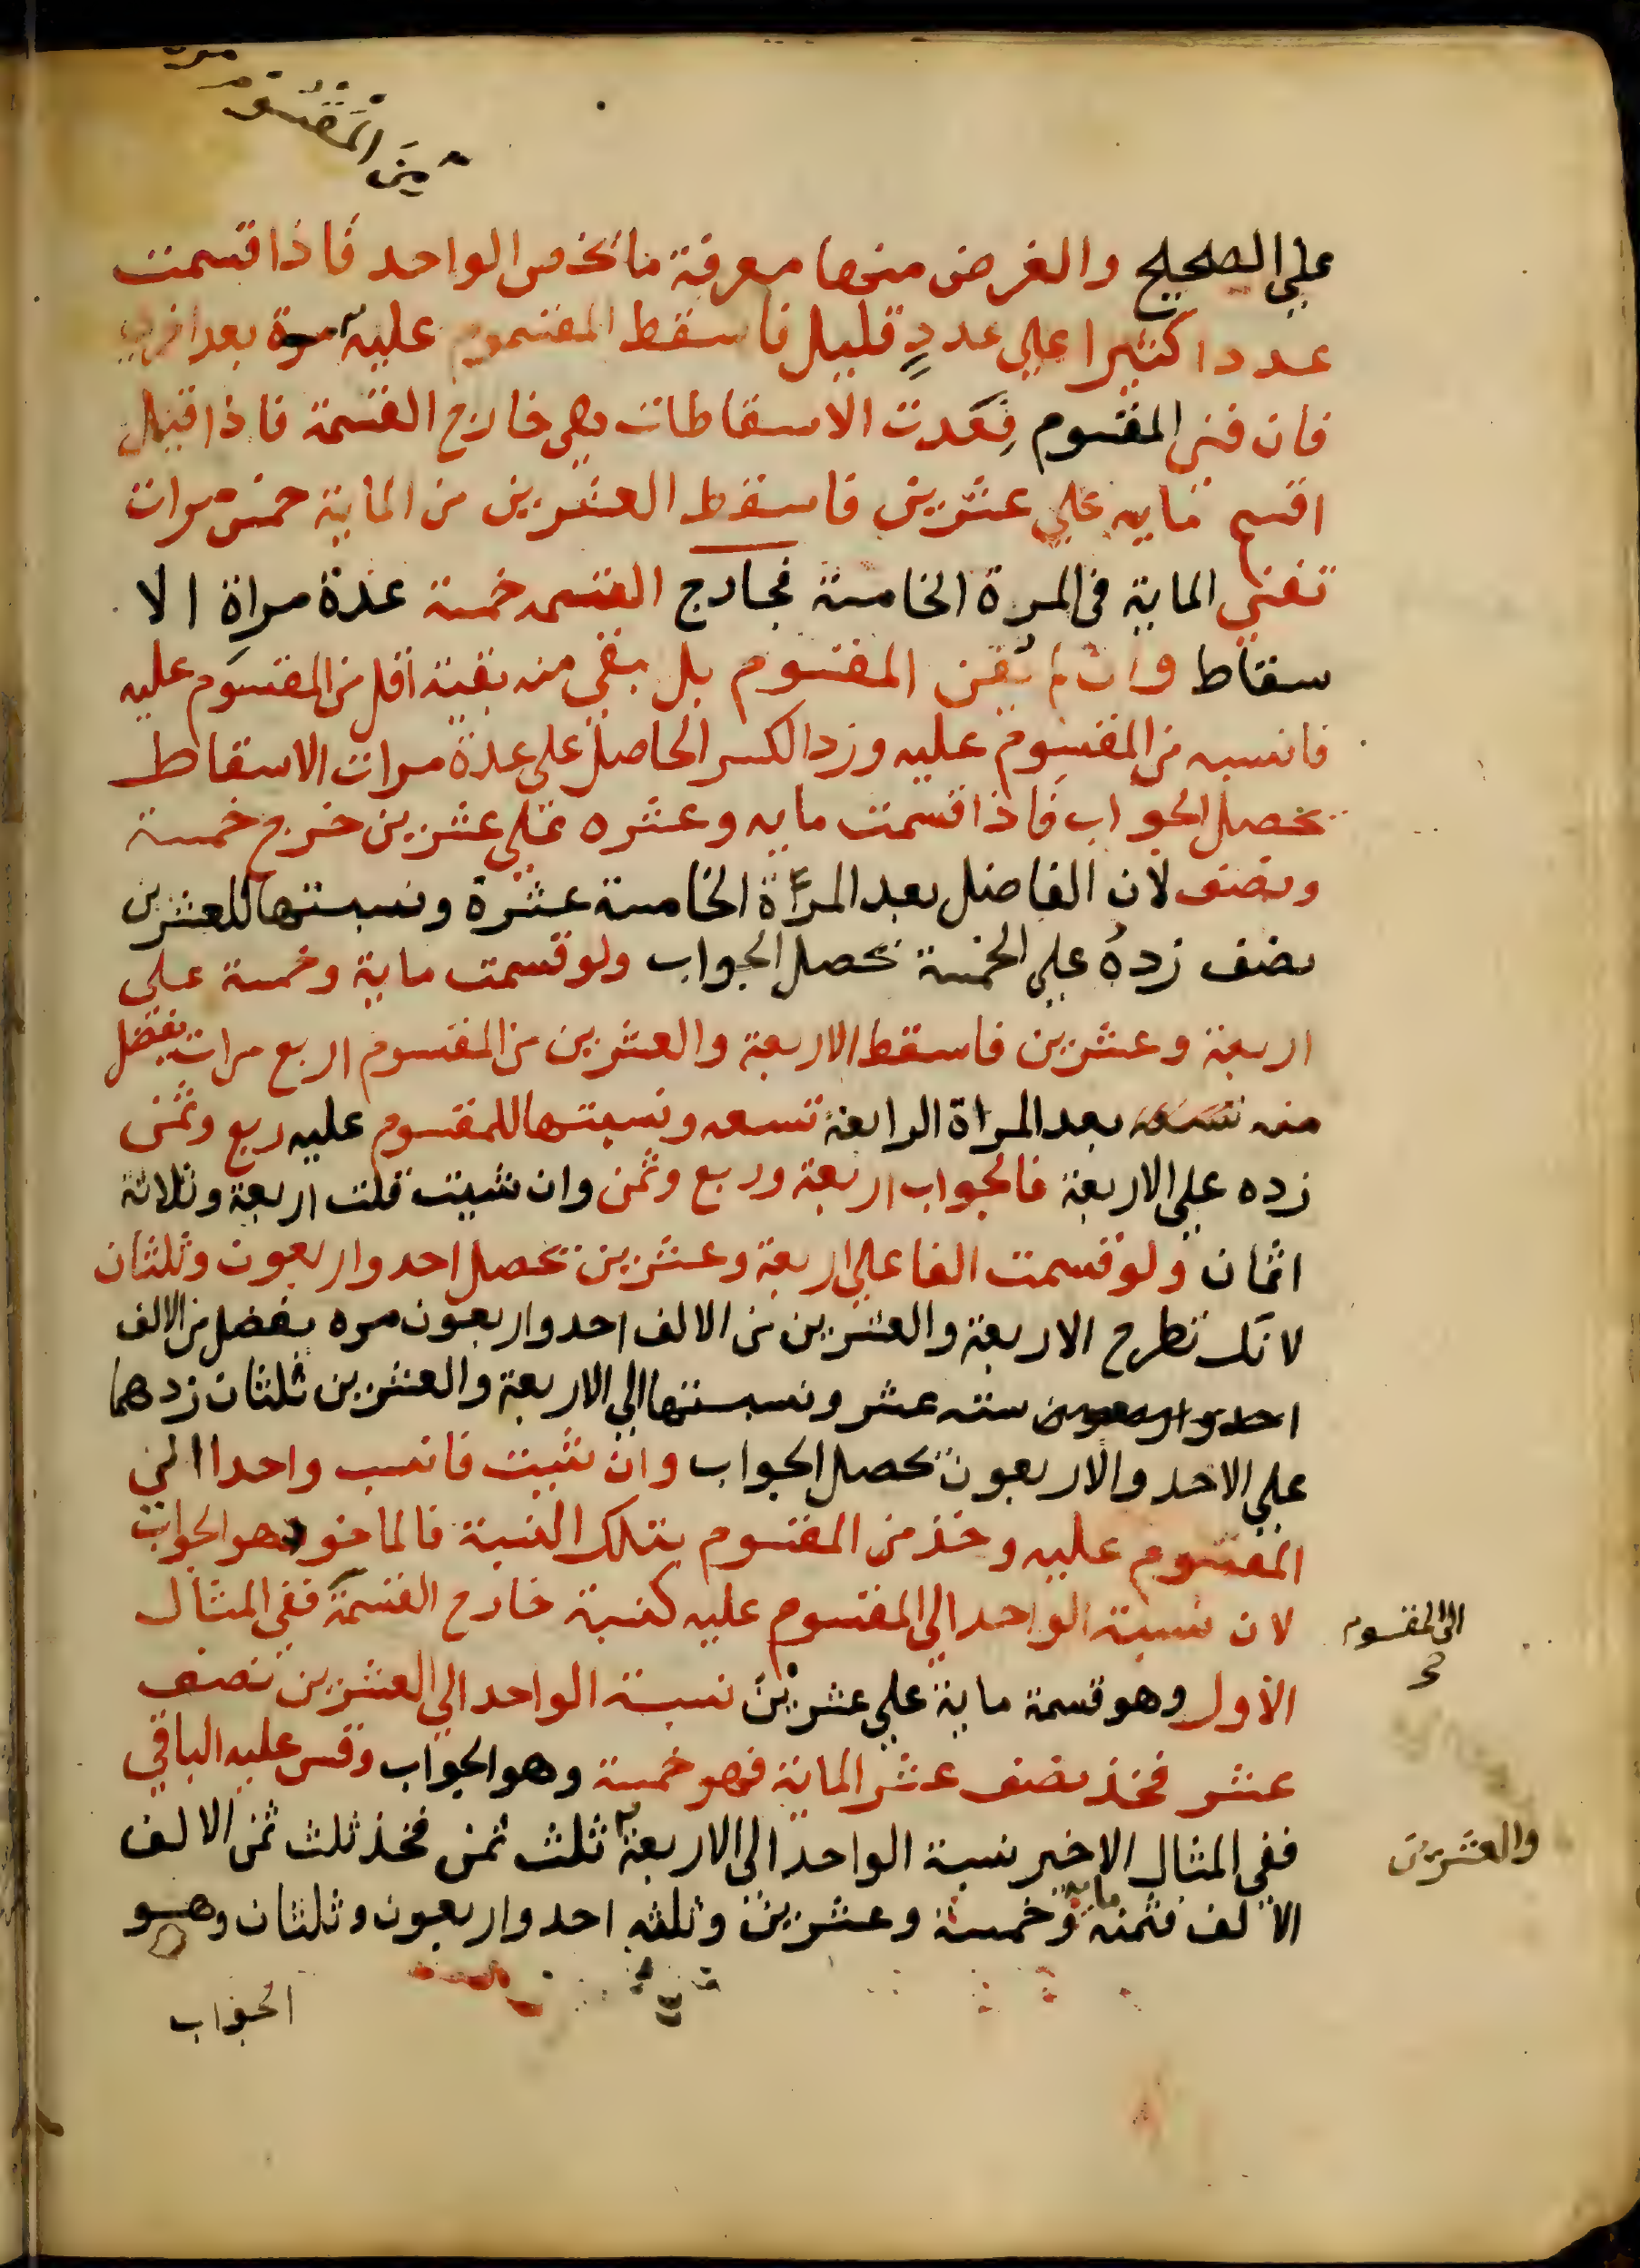 من المقسوم مرة
علي الصحيح والغرض منها معرفة ما يخص الواحد فاذا قسمت
عددا كثيرا علي عددٍ قليل فاسقط المقسوم عليه مرة بعد اخري
فان فني المقسوم فعدت الاسقاطات هي خارج القسمة فاذا قيل
اقسم مايه علي عشرين فاسقط العشرين من الماية خمس مرات
تفني الماية في المرة الخامسة فخارج القسمه خمسة عدة مراة الا
سقاط وان لم يفن المقسوم بل بقي منه بقية اقل من المقسوم عليه
فانسبه من المقسوم عليه وزد الكسر الحاصل علي عدة مرات الاسقاط
يحصل الجواب فاذا قسمت مايه وعشره علي عشرين خرج خمسة
ونصف لان الفاضل بعد المراة الخامسة عشرة ونسبتها للعشرين
نصف زده علي الخمسة يحصل الجواب ولو قسمت ماية وخمسة علي
اربعة وعشرين فاسقط الاربعة والعشرين من المقسوم اربع مرات يفضل
منه تسعه بعد المراة الرابعة تسعه ونسبتها للمقسوم عليه ربع وثمن
زده علي الاربعة فالجواب اربعة وربع وثمن وان شيت قلت اربعة وثلاثة
اثمان ولو قسمت الفا علي اربعة وعشرين تحصل احد واربعون وثلثان
لانك تطرح الاربعة والعشرين من الالف احد واربعون مره يفضل من الالف
احد واربعون سته عشر ونسبتها الي الاربعة والعشرين ثلثان زدهما
علي الاحد والاربعون يحصل الجواب وان شيت فانسب واحدا الي
المقسوم عليه وخذ من المقسوم بتلك النسبة فالماخوذ هو الجواب
لان نسبة الواحد الي المقسوم عليه كنسبة خارج القسمة ففي المثال
الي المقسوم
الاول وهو قسمة ماية علي عشرين نسبة الواحد الي العشرين نصف
عشر فخذ نصف عشر الماية فهو خمسة وهو الجواب وقس عليه الباقي
ففي المثال الاخير نسبة الواحد الي الاربعة ثلث ثمن فخذ ثلث ثمن الالف
والعشرين
الالف فثمنه مايه وخمسة وعشرين وثلثه احد واربعون وثلثان وهو
الجواب